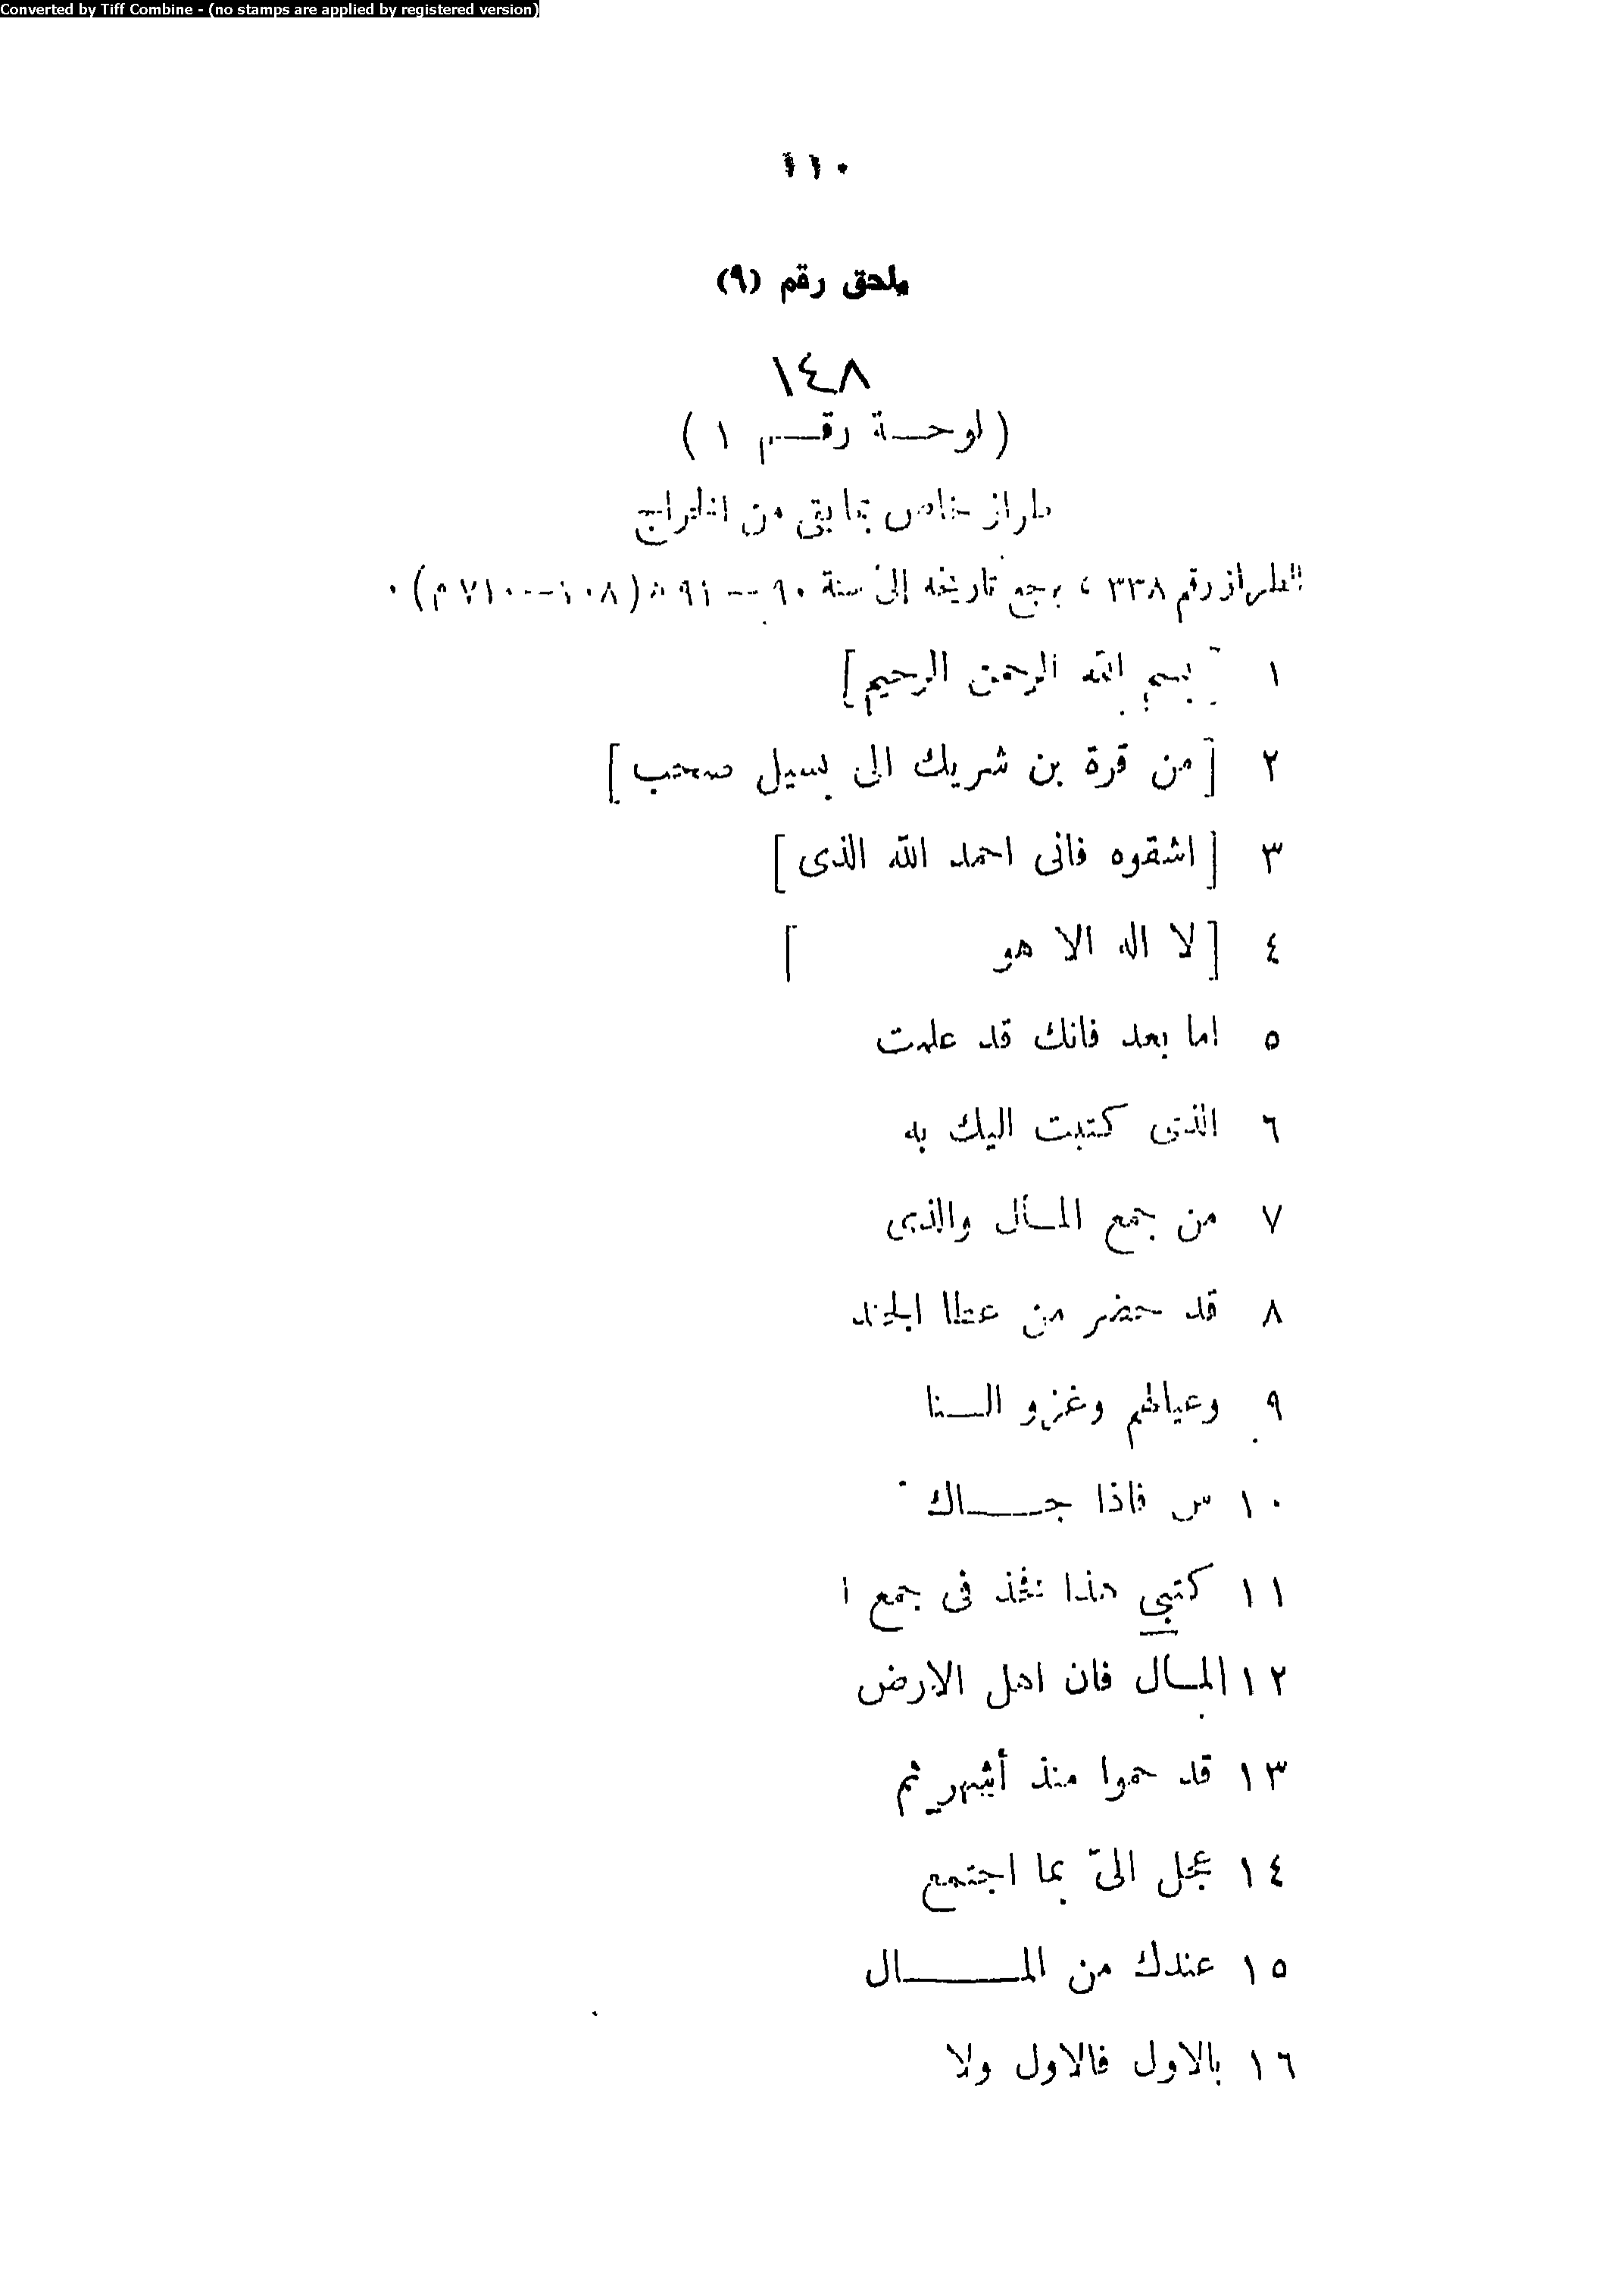 Converted by Tiff Combine - (no stamps are applied by registered version)
١١٠
ملحق رقم (٩)
١٤٨
(لوحـــة رقـــم ١)
طراز خاص بما بقى من الخراج
الطراز رقم ٣٣٨، يرجع تاريخه إلى سنة ٩٠ -- ٩١ هـ (٧٠٨ -- ٧١٠ م).
١ [بسم الله الرحمن الرحيم]
٢ [من قرة بن شريك الى بسيل صحب]
٣ [اشقوه فانى احمد الله الذى]
٤ [لا اله الا هو ]
٥ اما بعد فانك قد علمت
٦ الذى كتبت اليك به
٧ من جمع المــال والذى
٨ قد حضر من عطا الجند
٩ وعيالهم وغزو الـــنا
١٠ س فاذا جــــاك
١١ كتبي هذا فخذ فى جمع ا
١٢ المــال فان اهل الارض
١٣ قد حموا منذ أشهر ثم
١٤ عجل الىّ بما اجتمع
١٥ عندك من المــــــال
١٦ بالاول فالاول ولا